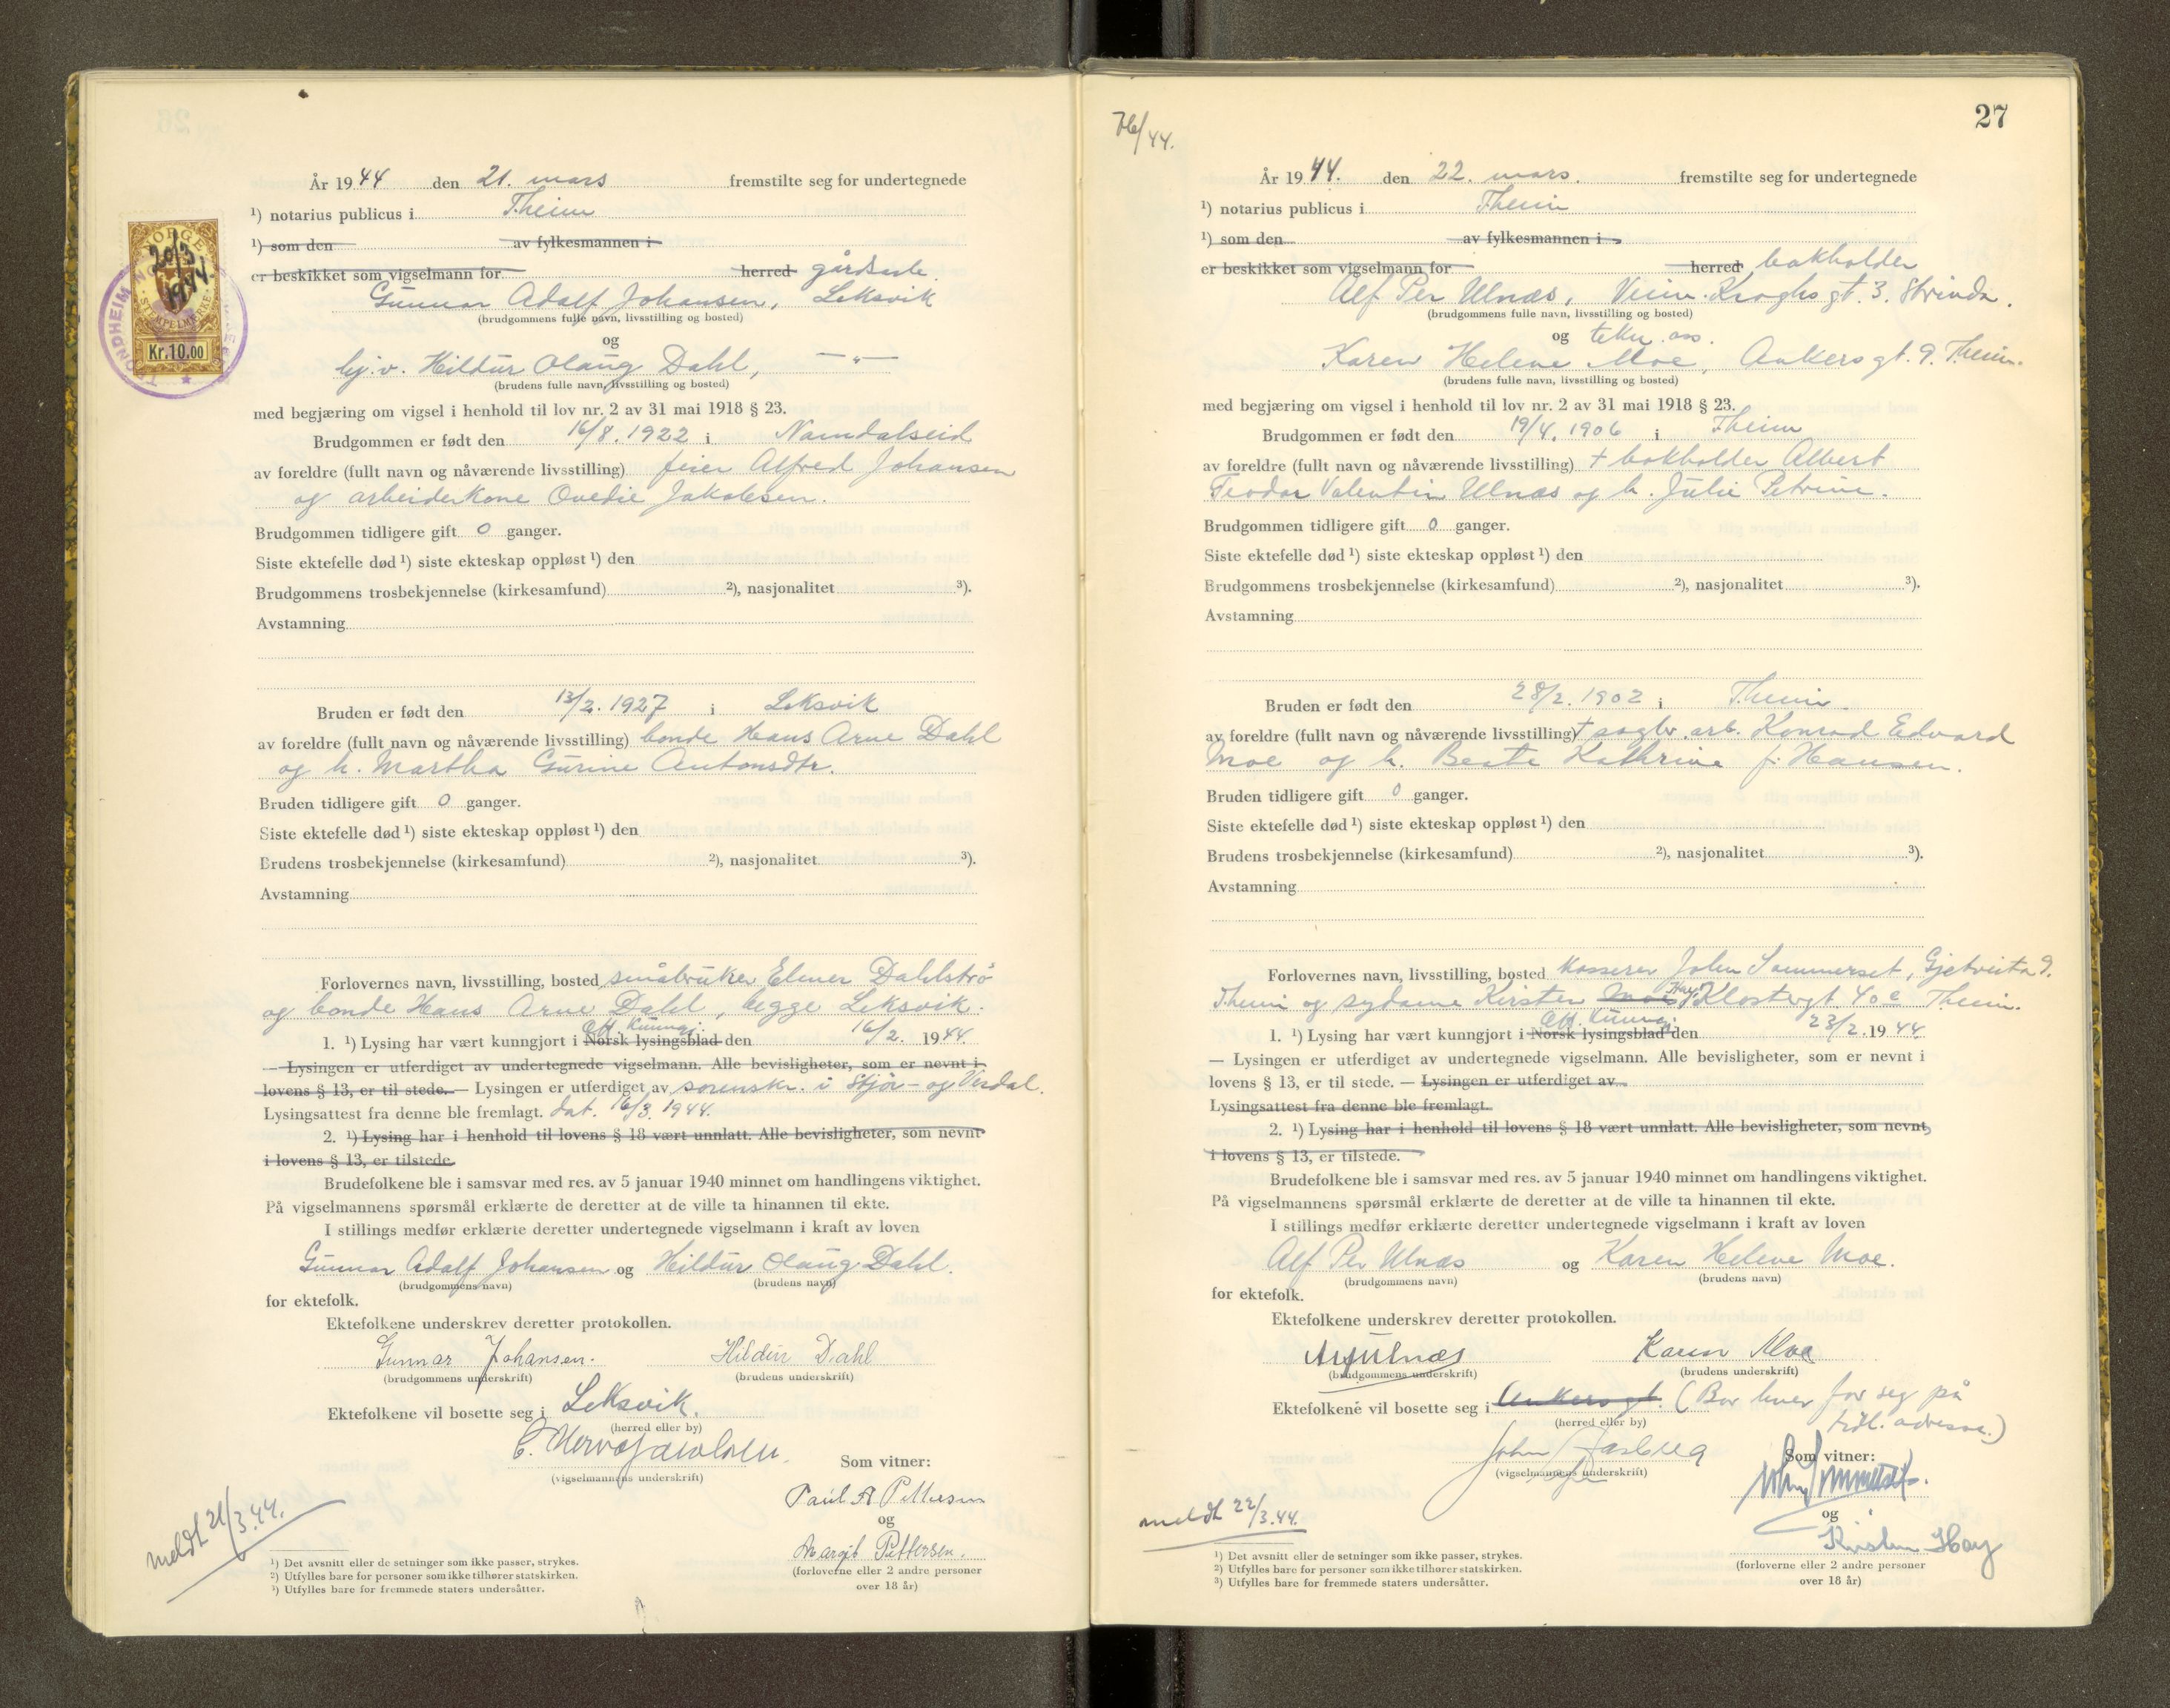 År 1944 den 21. mars fremstilte seg for undertegnede
¹) notarius publicus i Theim
¹) som den av fylkesmannen i
er beskikket som vigselmann for herred
Gunnar Adolf Johansen, Leksvik
(brudgommens fulle navn, livsstilling og bosted)
og
hj.v. Hildur Olaug Dahl, — " —
(brudens fulle navn, livsstilling og bosted)
med begjæring om vigsel i henhold til lov nr. 2 av 31 mai 1918 § 23.
Brudgommen er født den 16/8. 1922 i Namdalseid
av foreldre (fullt navn og nåværende livsstilling) feier Alfred Johansen
og arbeiderkone Ovedie Jakobsen.
Brudgommen tidligere gift 0 ganger.
Siste ektefelle død ¹) siste ekteskap oppløst ¹) den
Brudgommens trosbekjennelse (kirkesamfund) ²), nasjonalitet ³).
Avstamning
Bruden er født den 13/2. 1927 i Leksvik
av foreldre (fullt navn og nåværende livsstilling) bonde Hans Arne Dahl
og h. Martha Gurine Antonsdtr.
Bruden tidligere gift 0 ganger.
Siste ektefelle død ¹) siste ekteskap oppløst ¹) den
Brudens trosbekjennelse (kirkesamfund) ²), nasjonalitet ³).
Avstamning
Forlovernes navn, livsstilling, bosted småbruker Elmer Dahlstrø
og bonde Hans Arne Dahl, begge Leksvik.
Off. Kunngj.
1. ¹) Lysing har vært kunngjort i Norsk lysingsblad den 16/2. 1944
— Lysingen er utferdiget av undertegnede vigselmann. Alle bevisligheter, som er nevnt i
lovens § 13, er til stede. — Lysingen er utferdiget av sorenskr. i Stjør- og Verdal.
Lysingsattest fra denne ble fremlagt. dat. 16/3. 1944.
2. ¹) Lysing har i henhold til lovens § 18 vært unnlatt. Alle bevisligheter, som nevnt
i lovens § 13, er tilstede.
Brudefolkene ble i samsvar med res. av 5 januar 1940 minnet om handlingens viktighet.
På vigselmannens spørsmål erklærte de deretter at de ville ta hinannen til ekte.
I stillings medfør erklærte deretter undertegnede vigselmann i kraft av loven
Gunnar Adolf Johansen og Hildur Olaug Dahl.
(brudgommens navn) (brudens navn)
for ektefolk.
Ektefolkene underskrev deretter protokollen.
Gunnar Johansen. Hildur Dahl
(brudgommens underskrift) (brudens underskrift)
Ektefolkene vil bosette seg i Leksvik.
(herred eller by)
(vigselmannens underskrift)
Som vitner:
Paul A Pettersen
og
Margit Pettersen.
(forloverne eller 2 andre personer
over 18 år)
meldt 21/3.44.
¹) Det avsnitt eller de setninger som ikke passer, strykes.
²) Utfylles bare for personer som ikke tilhører statskirken.
³) Utfylles bare for fremmede staters undersåtter.
NORGE
20/3
1944
STEMPELMERKE
Kr.10.00
TRONDHEIM
76/44.
27
År 1944. den 22. mars. fremstilte seg for undertegnede
¹) notarius publicus i Theim
¹) som den av fylkesmannen i
er beskikket som vigselmann for herred bokholder
Alf Per Ulnæs, Vilh. Kroghs gt. 3. Strinda.
(brudgommens fulle navn, livsstilling og bosted)
og tekn. ass.
Karen Helene Moe, Ankers gt. 9. Theim.
(brudens fulle navn, livsstilling og bosted)
med begjæring om vigsel i henhold til lov nr. 2 av 31 mai 1918 § 23.
Brudgommen er født den 19/4. 1906 i Theim
av foreldre (fullt navn og nåværende livsstilling) + bokholder Albert
Teodor Valentin Ulnæs og h. Julie Petrine.
Brudgommen tidligere gift 0 ganger.
Siste ektefelle død ¹) siste ekteskap oppløst ¹) den
Brudgommens trosbekjennelse (kirkesamfund) ²), nasjonalitet ³).
Avstamning
Bruden er født den 28/2. 1902 i Theim.
av foreldre (fullt navn og nåværende livsstilling) + sagbr. arb. Konrad Edvard
Moe og h. Beate Kathrine f. Hansen.
Bruden tidligere gift 0 ganger.
Siste ektefelle død ¹) siste ekteskap oppløst ¹) den
Brudens trosbekjennelse (kirkesamfund) ²), nasjonalitet ³).
Avstamning
Forlovernes navn, livsstilling, bosted kasserer John Sommerset, Gjetveita 9.
Theim og sydame Kirsten Moe Høy, Klostergt. 40c Theim.
Off. Kunngj.
1. ¹) Lysing har vært kunngjort i Norsk lysingsblad den 23/2. 1944
— Lysingen er utferdiget av undertegnede vigselmann. Alle bevisligheter, som er nevnt i
lovens § 13, er til stede. — Lysingen er utferdiget av
Lysingsattest fra denne ble fremlagt.
2. ¹) Lysing har i henhold til lovens § 18 vært unnlatt. Alle bevisligheter, som nevnt,
i lovens § 13, er tilstede.
Brudefolkene ble i samsvar med res. av 5 januar 1940 minnet om handlingens viktighet.
På vigselmannens spørsmål erklærte de deretter at de ville ta hinannen til ekte.
I stillings medfør erklærte deretter undertegnede vigselmann i kraft av loven
Alf Per Ulnæs og Karen Helene Moe.
(brudgommens navn) (brudens navn)
for ektefolk.
Ektefolkene underskrev deretter protokollen.
Ulnæs Karen Moe
(brudgommens underskrift) (brudens underskrift)
Ektefolkene vil bosette seg i Ankersgt. (Bor hver for seg på
(herred eller by) tidl. adresse.)
John
(vigselmannens underskrift)
Som vitner:
og
Kirsten Høy
(forloverne eller 2 andre personer
over 18 år)
meldt 22/3.44.
¹) Det avsnitt eller de setninger som ikke passer, strykes.
²) Utfylles bare for personer som ikke tilhører statskirken.
³) Utfylles bare for fremmede staters undersåtter.